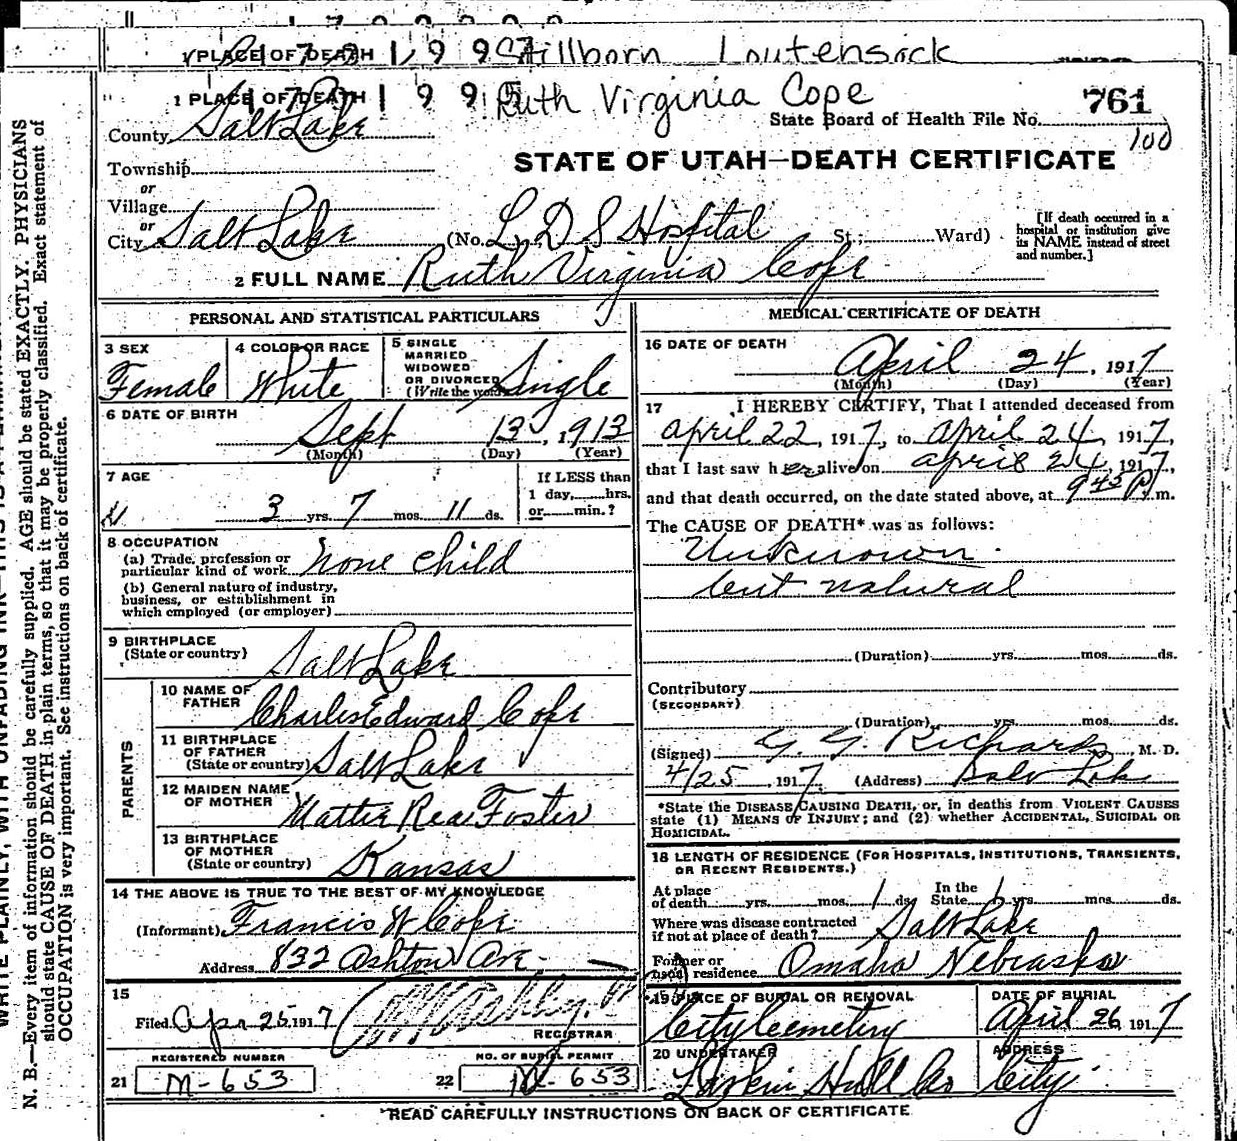 1 PLACE OF DEATH 1997 Stillborn Loutensock
1 PLACE OF DEATH 1995 Ruth Virginia Cope
County Salt Lake
State Board of Health File No. 761
100
Township
or
Village
or
City Salt Lake
STATE OF UTAH—DEATH CERTIFICATE
(No. L D S Hospital St.; Ward)
[If death occurred in a
hospital or institution give
its NAME instead of street
and number.]
2 FULL NAME Ruth Virginia Cope
PERSONAL AND STATISTICAL PARTICULARS
3 SEX
Female
4 COLOR OR RACE
White
5 SINGLE
MARRIED
WIDOWED
OR DIVORCED
(Write the word) Single
6 DATE OF BIRTH
Sept 13, 1913
(Month) (Day) (Year)
7 AGE
3 yrs. 7 mos. 11 ds.
If LESS than
1 day, hrs.
or min.?
8 OCCUPATION
(a) Trade, profession or
particular kind of work none child
(b) General nature of industry,
business, or establishment in
which employed (or employer)
9 BIRTHPLACE
(State or country) Salt Lake
PARENTS
10 NAME OF
FATHER Charles Edward Cope
11 BIRTHPLACE
OF FATHER
(State or country) Salt Lake
12 MAIDEN NAME
OF MOTHER Mattie Rea Foster
13 BIRTHPLACE
OF MOTHER
(State or country) Kansas
14 THE ABOVE IS TRUE TO THE BEST OF MY KNOWLEDGE
(Informant) Francis W Cope
Address 832 Ashton Ave.
15
Filed Apr 25 1917
REGISTRAR
REGISTERED NUMBER
21 M-653
NO. OF BURIAL PERMIT
22 M-653
MEDICAL CERTIFICATE OF DEATH
16 DATE OF DEATH
April 24, 1917
(Month) (Day) (Year)
17 I HEREBY CERTIFY, That I attended deceased from
April 22, 1917, to April 24, 1917,
that I last saw her alive on April 24, 1917,
and that death occurred, on the date stated above, at 9 45 P m.
The CAUSE OF DEATH* was as follows:
Unknown.
but natural
(Duration) yrs. mos. ds.
Contributory
(SECONDARY)
(Duration) yrs. mos. ds.
(Signed) G. G. Richards, M. D.
4/25, 1917 (Address) Salt Lake
*State the DISEASE CAUSING DEATH, or, in deaths from VIOLENT CAUSES
state (1) MEANS OF INJURY; and (2) whether ACCIDENTAL, SUICIDAL OR
HOMICIDAL.
18 LENGTH OF RESIDENCE (FOR HOSPITALS, INSTITUTIONS, TRANSIENTS,
OR RECENT RESIDENTS.)
At place
of death yrs. mos. 1 ds. In the
State yrs. mos. ds.
Where was disease contracted
if not at place of death? Salt Lake
Former or
usual residence Omaha Nebraska
19 PLACE OF BURIAL OR REMOVAL
City Cemetery
DATE OF BURIAL
April 26 1917
20 UNDERTAKER
Larkin Hull Co
ADDRESS
City
*READ CAREFULLY INSTRUCTIONS ON BACK OF CERTIFICATE
N. B.—Every item of information should be carefully supplied. AGE should be stated EXACTLY. PHYSICIANS
should state CAUSE OF DEATH in plain terms, so that it may be properly classified. Exact statement of
OCCUPATION is very important. See instructions on back of certificate.